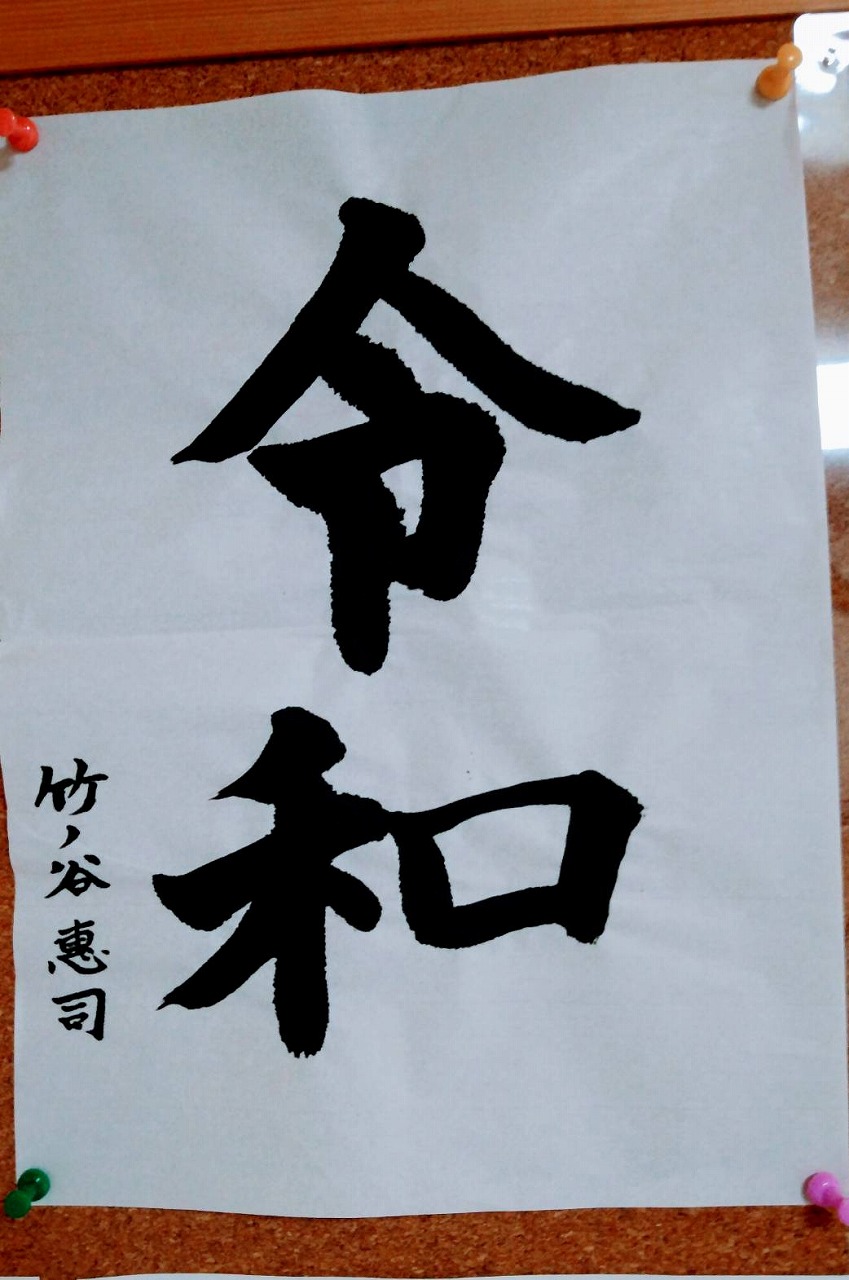 令和
竹ノ谷惠司